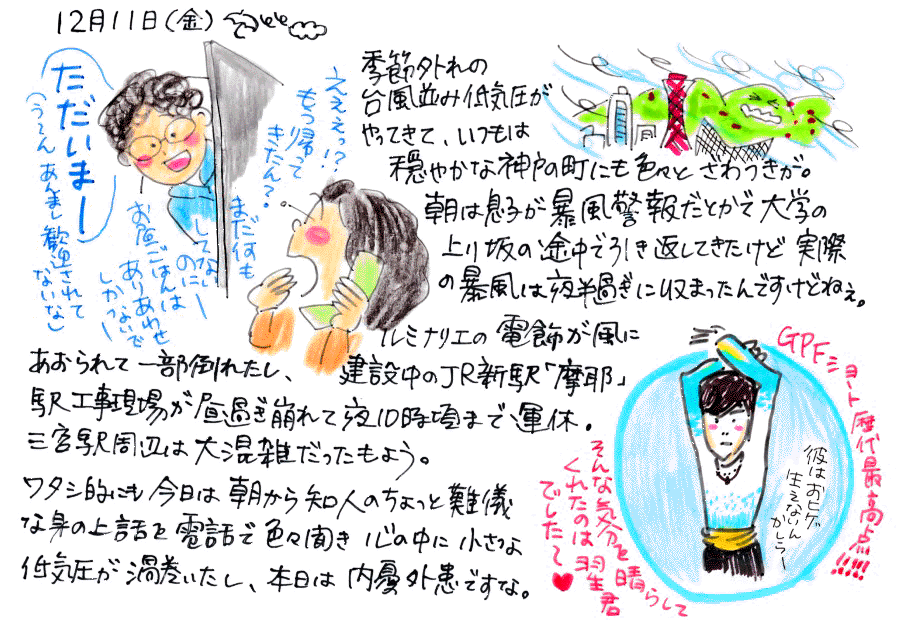 12月11日(金)
ただいまー
(うーん あんまし歓迎されて
ないなぁ)
えええっ?!
もう帰って
きたん?
まだ何も
してない
のにー
お昼ごはんは
ありあわせ
ないで
しかっー
季節外れの
台風並み低気圧が
やってきて、いつもは
穏やかな神戸の町にも色々とざわつきが。
朝は息子が暴風警報だとかで大学の
上り坂の途中で引き返してきたけど 実際
の暴風は夜半過ぎに収まったんですけどねぇ。
ルミナリエの電飾が風に
あおられて一部倒れたし、建設中のJR新駅「摩耶」
駅工事現場が昼過ぎ崩れて夜10時頃まで運休。
三宮駅周辺は大混雑だったもよう。
ワタシ的にも今日は朝から知人のちょっと難儀
な身の上話を電話で色々聞き心の中に小さな
低気圧が渦巻いたし、本日は内憂外患ですな。
GPFショート歴代最高点!!!!!
彼はおヒゲ
生えないん
かしらー
そんな気分を晴らして
くれたのは羽生君
でしたて♥